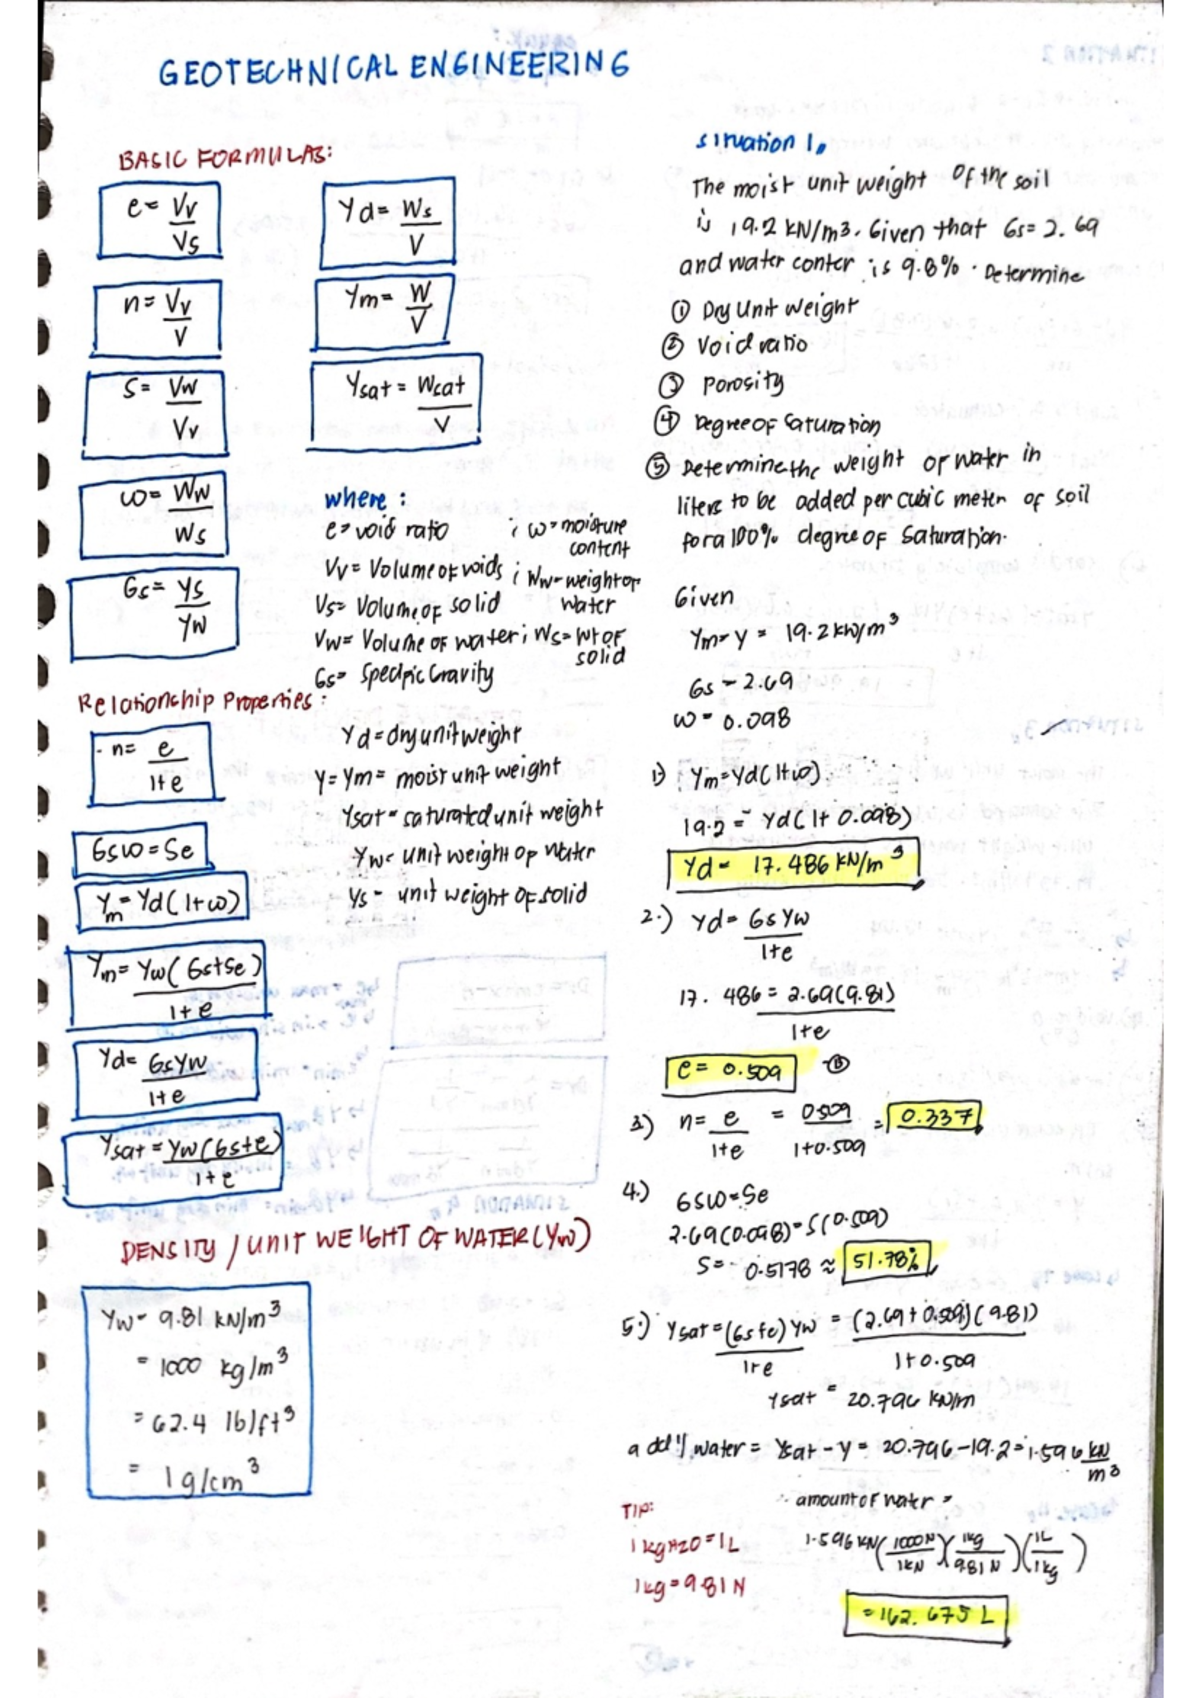 GEOTECHNICAL ENGINEERING
BASIC FORMULAS:
e = Vv / Vs
n = Vv / V
S = Vw / Vv
ω = Ww / Ws
Gs = γs / γw
γd = Ws / V
γm = W / V
γsat = Wsat / V
where :
e = void ratio ; ω = moisture content
Vv = Volume of voids ; Ww = weight of water
Vs = Volume of solid
Vw = Volume of water ; Ws = wt of solid
Gs = Specific Gravity
γd = dry unit weight
γ = γm = moist unit weight
γsat = saturated unit weight
γw = unit weight of water
γs = unit weight of solid
Relationship Properties :
n = e / 1+e
Gsω = Se
γm = γd (1+ω)
γm = γw (Gs+Se) / 1+e
γd = Gsγw / 1+e
γsat = γw (Gs+e) / 1+e
DENSITY / UNIT WEIGHT OF WATER (γw)
γw = 9.81 kN/m³
= 1000 kg/m³
= 62.4 lb/ft³
= 1 g/cm³
situation 1.
The moist unit weight of the soil
is 19.2 kN/m3. Given that Gs = 2.69
and water conter is 9.8%. Determine
① Dry Unit Weight
② Void ratio
③ Porosity
④ Degree of Saturation
⑤ Determine the weight of water in
liters to be added per cubic meter of soil
for a 100% degree of saturation.
Given
γm = γ = 19.2 kN/m³
Gs = 2.69
ω = 0.098
1) γm = γd (1+ω)
19.2 = γd (1+ 0.098)
γd = 17.486 kN/m³
2.) γd = Gs γw / 1+e
17.486 = 2.69(9.81) / 1+e
e = 0.509
3) n = e / 1+e = 0.509 / 1+0.509 = 0.337
4.) Gsω = Se
2.69(0.098) = S(0.509)
S = 0.5178 ≈ 51.78%
5.) γsat = (Gs+e) γw / 1+e = (2.69+0.509)(9.81) / 1+0.509
γsat = 20.796 kN/m
add'l water = γsat - γ = 20.796 - 19.2 = 1.596 kN/m³
∴ amount of water =
1.596 kN (1000 N / 1 kN)(1 kg / 9.81 N)(1L / 1 kg)
= 162.675 L
TIP:
1 kg H2O = 1L
1 kg = 9.81 N